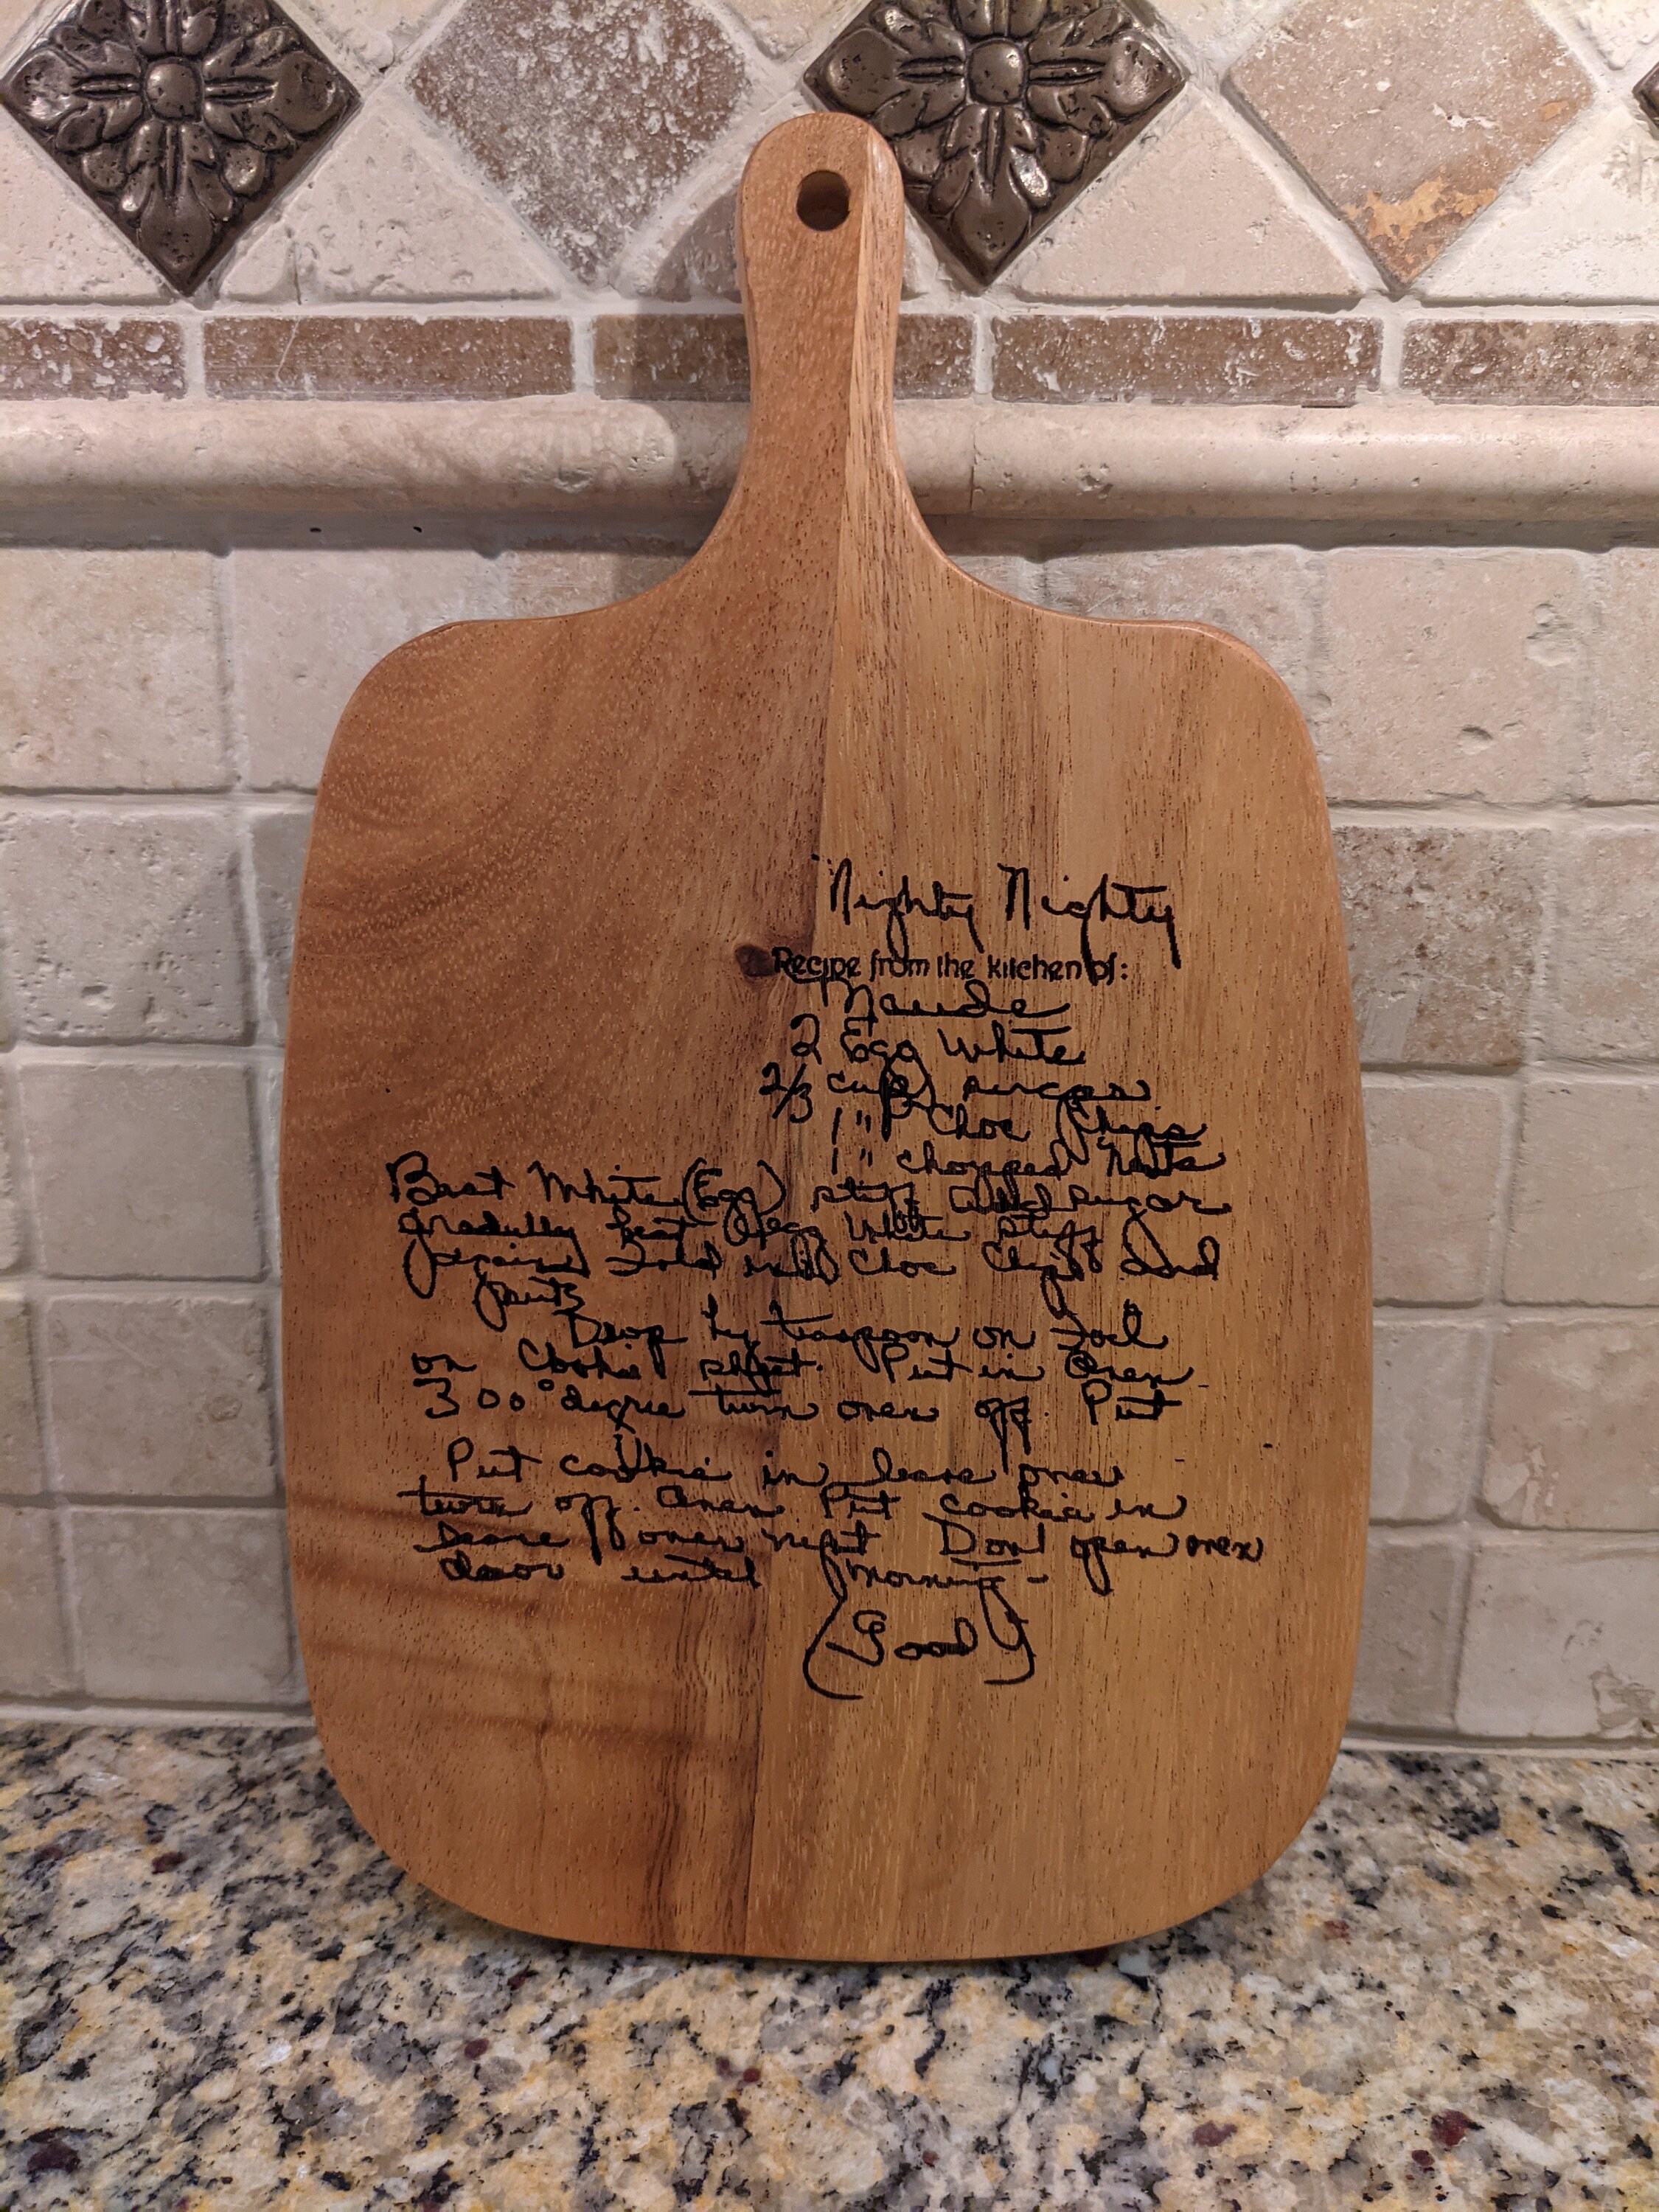 Nighty Nighty
Recipe from the kitchen of:
2 Egg White
2/3 cup
1 " Choc Chips
1 " chopped Nuts
Beat White (Egg) stiff add sugar
gradully beat egg White stiff
Fold in Choc Chips and
Drop by teaspoon on Foil
on Cookie sheet. Put in Oven
300° degree turn oven off. Put
Put cookie in leave oven
turn off. Oven Put cookie in
leave over night Don't open oven
door until morning -
(Good)